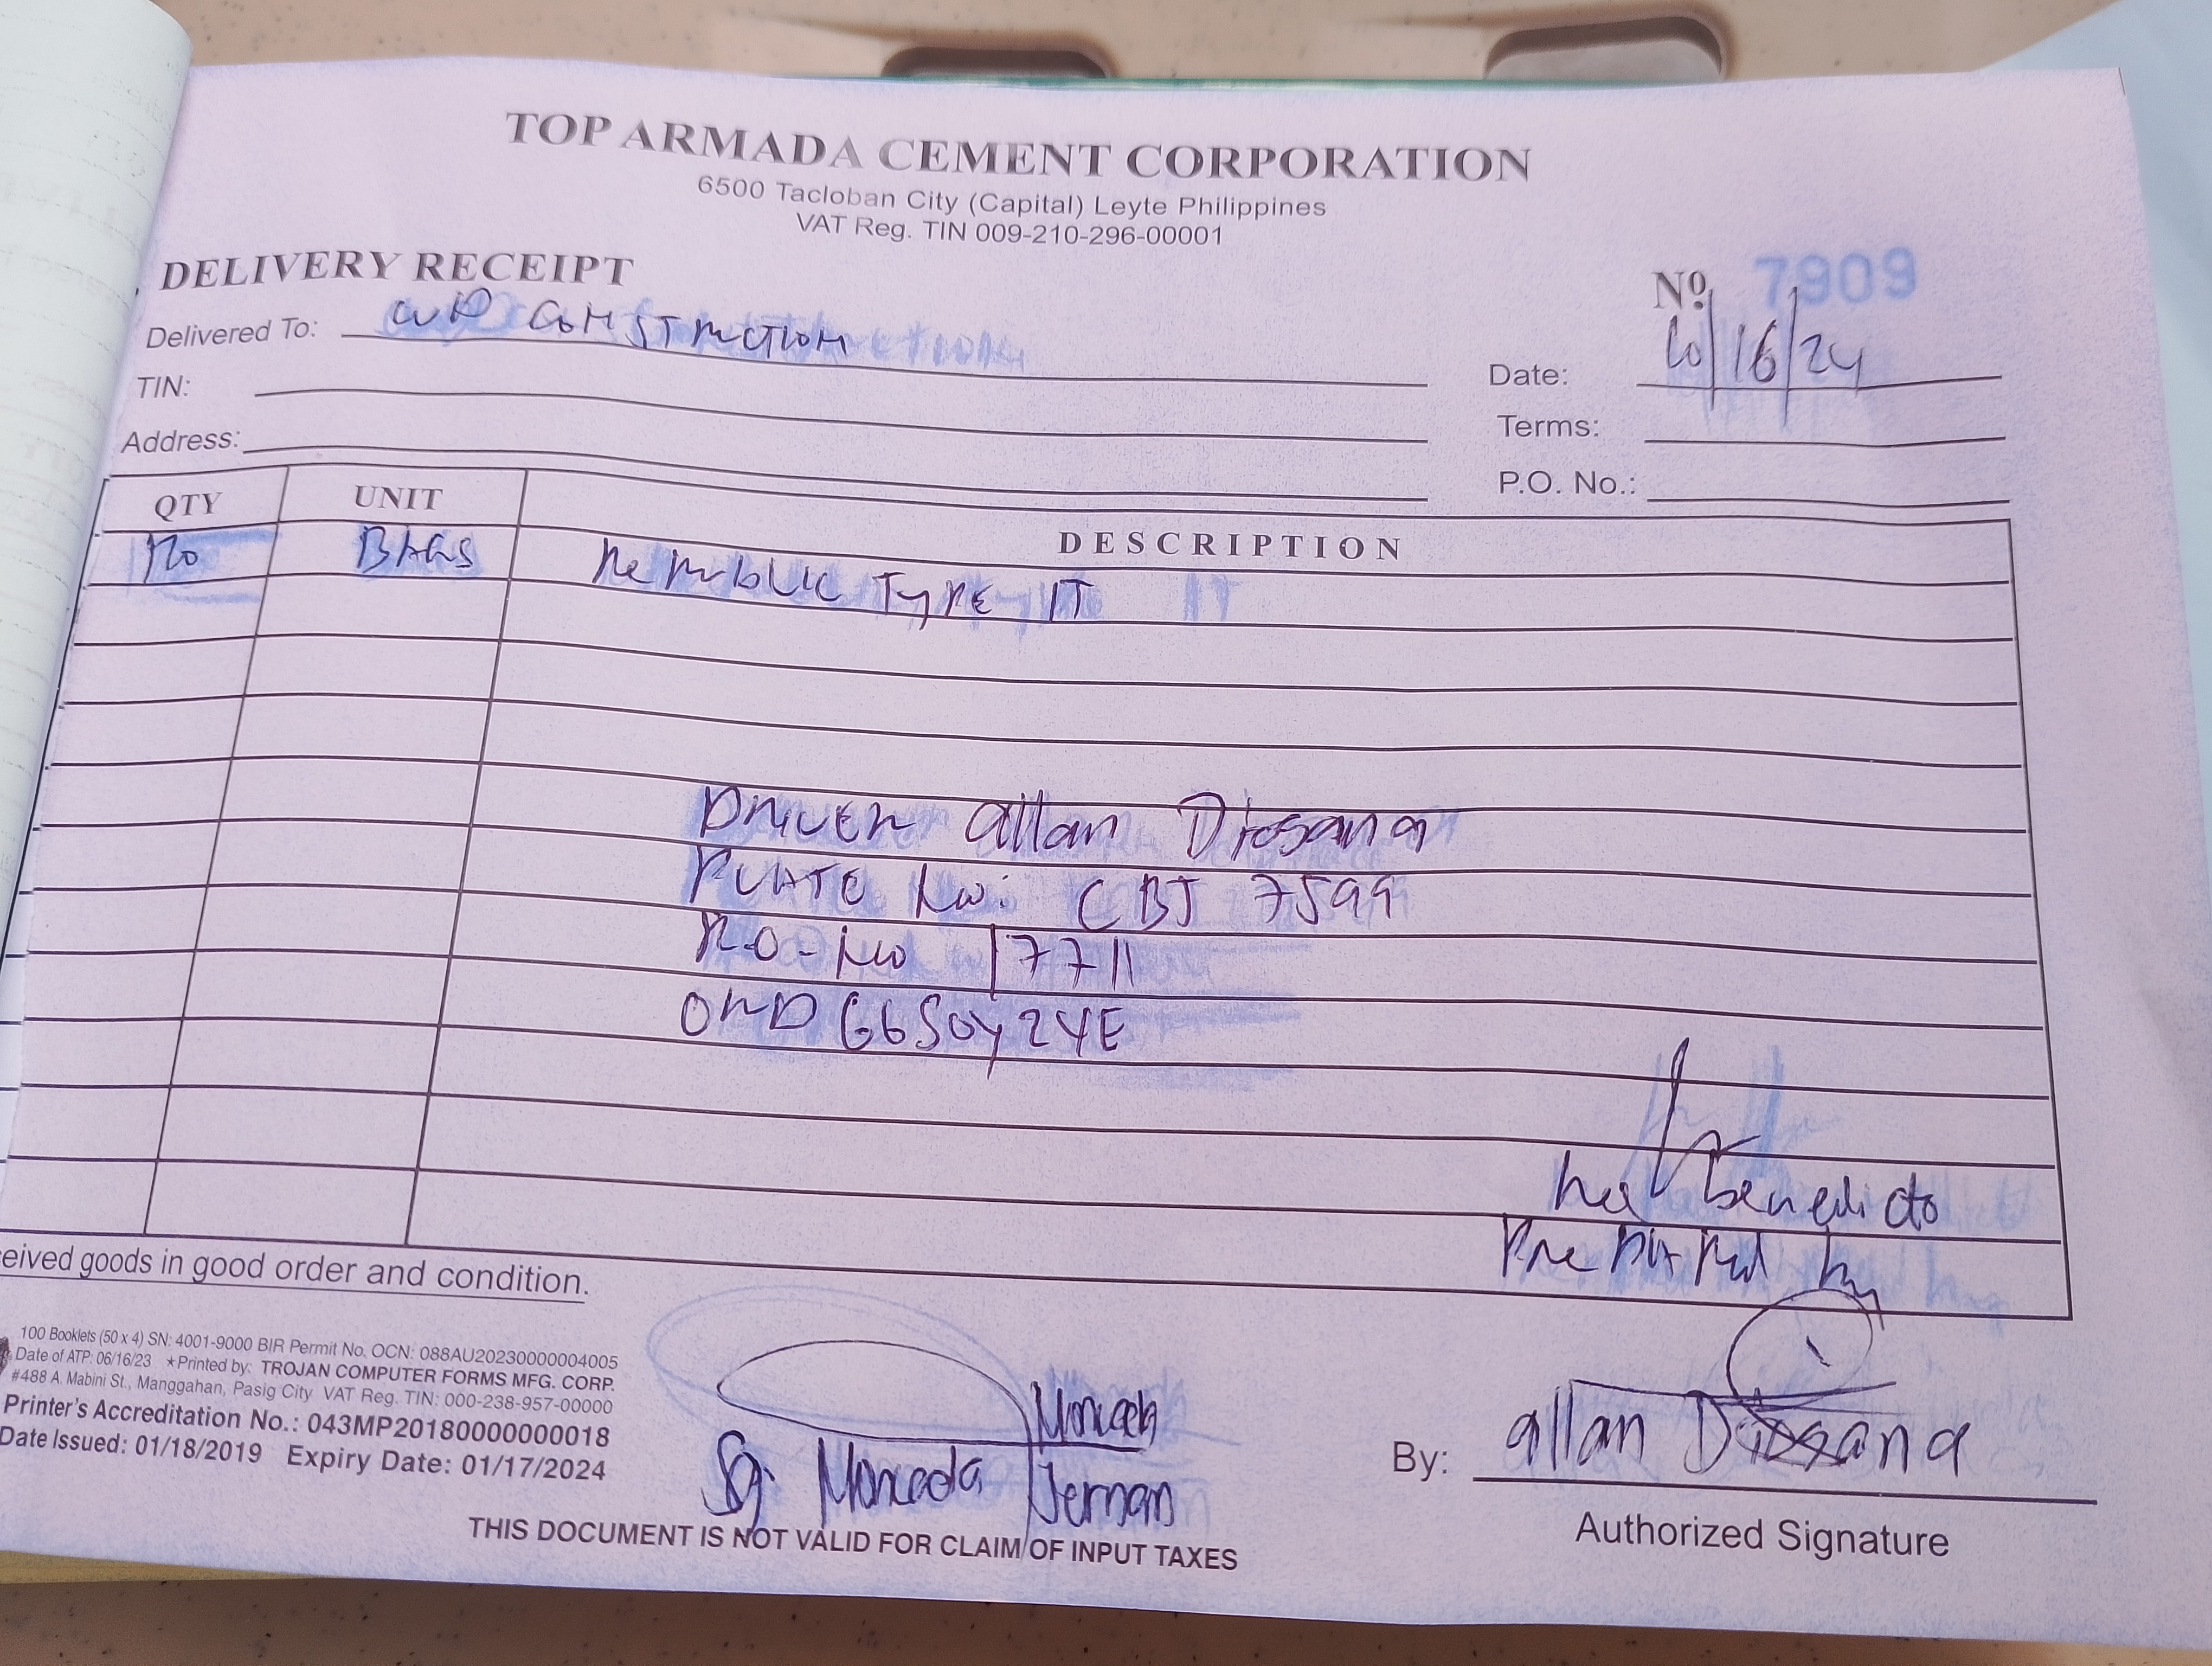 TOP ARMADA CEMENT CORPORATION
6500 Tacloban City (Capital) Leyte Philippines
VAT Reg. TIN 009-210-296-00001
DELIVERY RECEIPT
Nº 7909
Delivered To: CONSTRUCTION
Date: 10/16/24
TIN:
Terms:
Address:
P.O. No.:
QTY UNIT DESCRIPTION
BAGS REPUBLIC TYPE IT
DRIVER allan Diosana
PLATE No: CBJ 7599
P.O-No 17711
ORD G6SOY24E
benedicto
Prepared by
eived goods in good order and condition.
100 Booklets (50 x 4) SN: 4001-9000 BIR Permit No. OCN: 088AU20230000004005
Date of ATP: 06/16/23 ★Printed by: TROJAN COMPUTER FORMS MFG. CORP.
#488 A. Mabini St., Manggahan, Pasig City VAT Reg. TIN: 000-238-957-00000
Printer's Accreditation No.: 043MP20180000000018
Date Issued: 01/18/2019 Expiry Date: 01/17/2024
Sg. Moncada Jernan
By: allan Diosana
Authorized Signature
THIS DOCUMENT IS NOT VALID FOR CLAIM OF INPUT TAXES